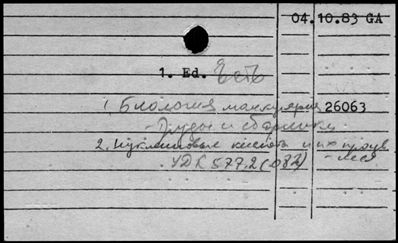 04.10.83 GA
1. Ed. Есть
1. Биология 26063
- Труды и сборники
2. Нуклеиновые кислоты и их
УДК 577.2(082)